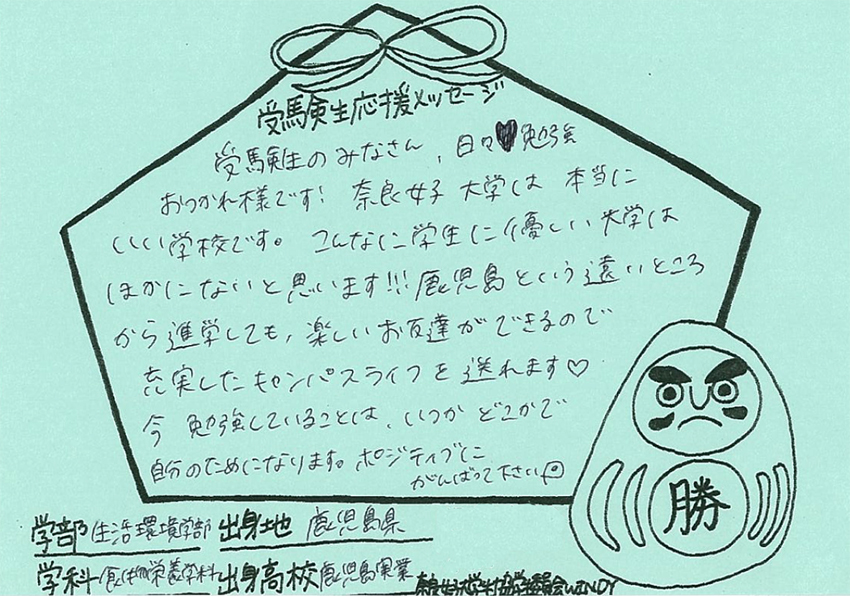 受験生応援メッセージ
受験生のみなさん、日々♥勉強
おつかれ様です! 奈良女子大学は 本当に
いい学校です。こんなに学生に優しい大学は
ほかにないと思います!!!鹿児島という遠いところ
から進学しても、楽しいお友達ができるので
充実したキャンパスライフを送れます♡
今 勉強していることは、いつか どこかで
自分のためになります。ポジティブに
がんばって下さい
勝
学部 生活環境学部 出身地 鹿児島県
学科 食物栄養学科 出身高校 鹿児島実業
奈良女子大学生協学生委員会WINDY